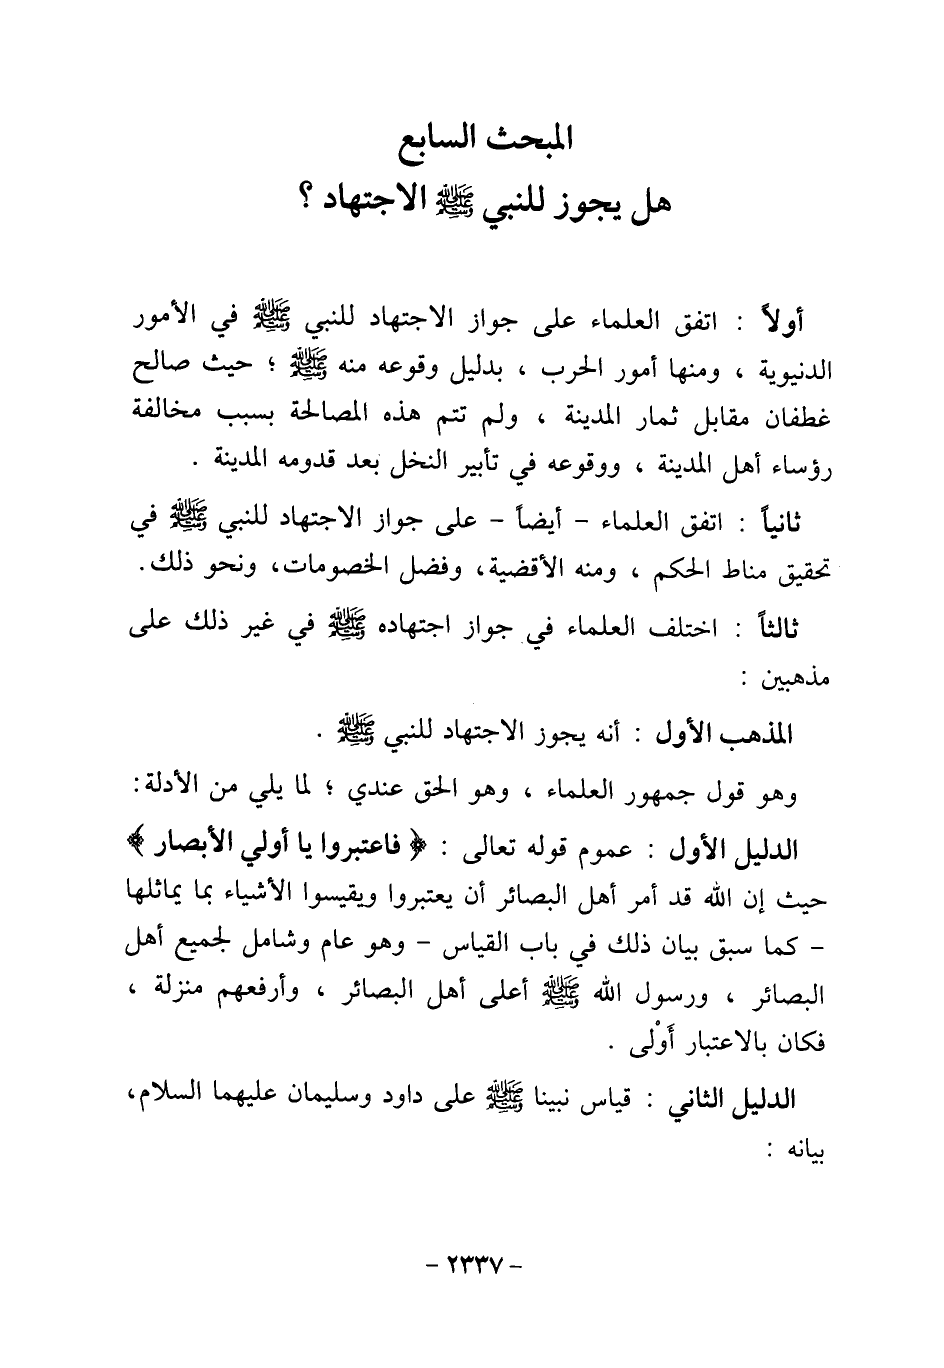 المبحث السابع
هل يجوز للنبي ﷺ الاجتهاد ؟
أولاً : اتفق العلماء على جواز الاجتهاد للنبي ﷺ في الأمور
الدنيوية ، ومنها أمور الحرب ، بدليل وقوعه منه ﷺ ؛ حيث صالح
غطفان مقابل ثمار المدينة ، ولم تتم هذه المصالحة بسبب مخالفة
رؤساء أهل المدينة ، ووقوعه في تأبير النخل بعد قدومه المدينة .
ثانياً : اتفق العلماء - أيضاً - على جواز الاجتهاد للنبي ﷺ في
تحقيق مناط الحكم ، ومنه الأقضية، وفضل الخصومات، ونحو ذلك.
ثالثاً : اختلف العلماء في جواز اجتهاده ﷺ في غير ذلك على
مذهبين :
المذهب الأول : أنه يجوز الاجتهاد للنبي ﷺ .
وهو قول جمهور العلماء ، وهو الحق عندي ؛ لما يلي من الأدلة:
الدليل الأول : عموم قوله تعالى : ﴿ فاعتبروا يا أولي الأبصار ﴾
حيث إن الله قد أمر أهل البصائر أن يعتبروا ويقيسوا الأشياء بما يماثلها
- كما سبق بيان ذلك في باب القياس - وهو عام وشامل لجميع أهل
البصائر ، ورسول الله ﷺ أعلى أهل البصائر ، وأرفعهم منزلة ،
فكان بالاعتبار أَوْلى .
الدليل الثاني : قياس نبينا ﷺ على داود وسليمان عليهما السلام،
بيانه :
- ٢٣٣٧ -